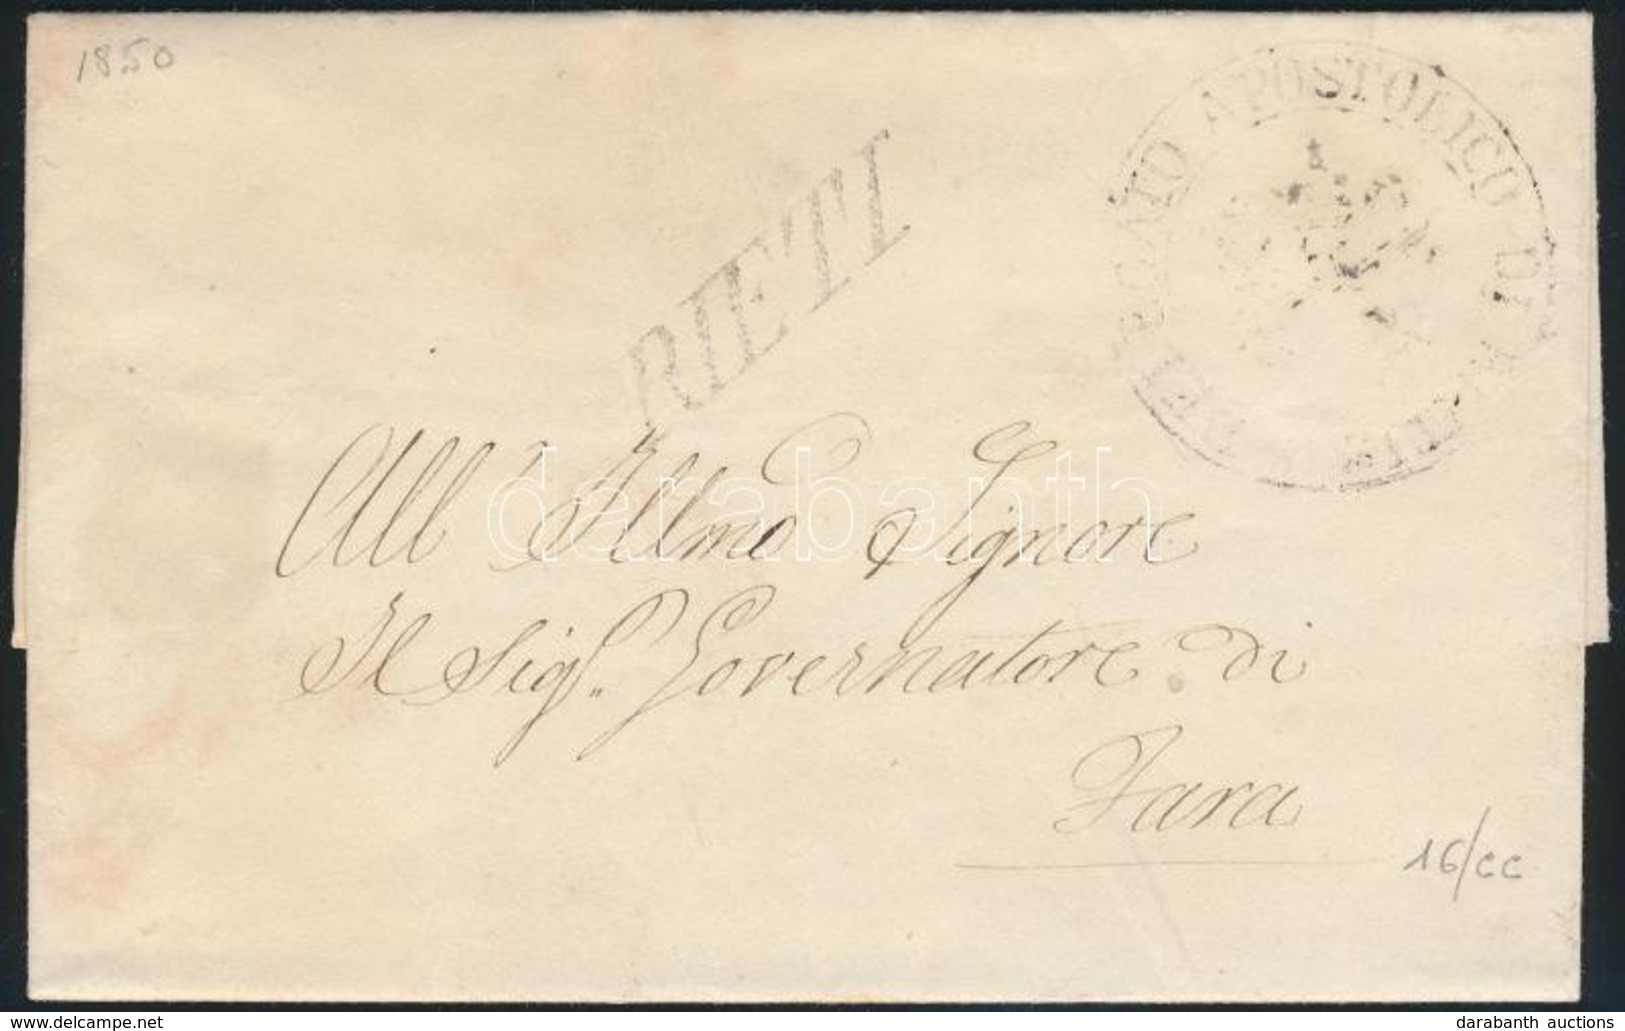 1850
APOSTOLICO DI
RIETI
All' Illmo Signore
darabanth
Il Sigr. Governatore di
Fara
16/cc
delcampe.net
darabanth auctions